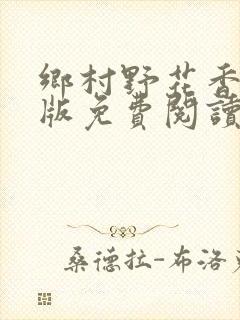 鄉村野花香
版免費閱讀
桑德拉-布洛克